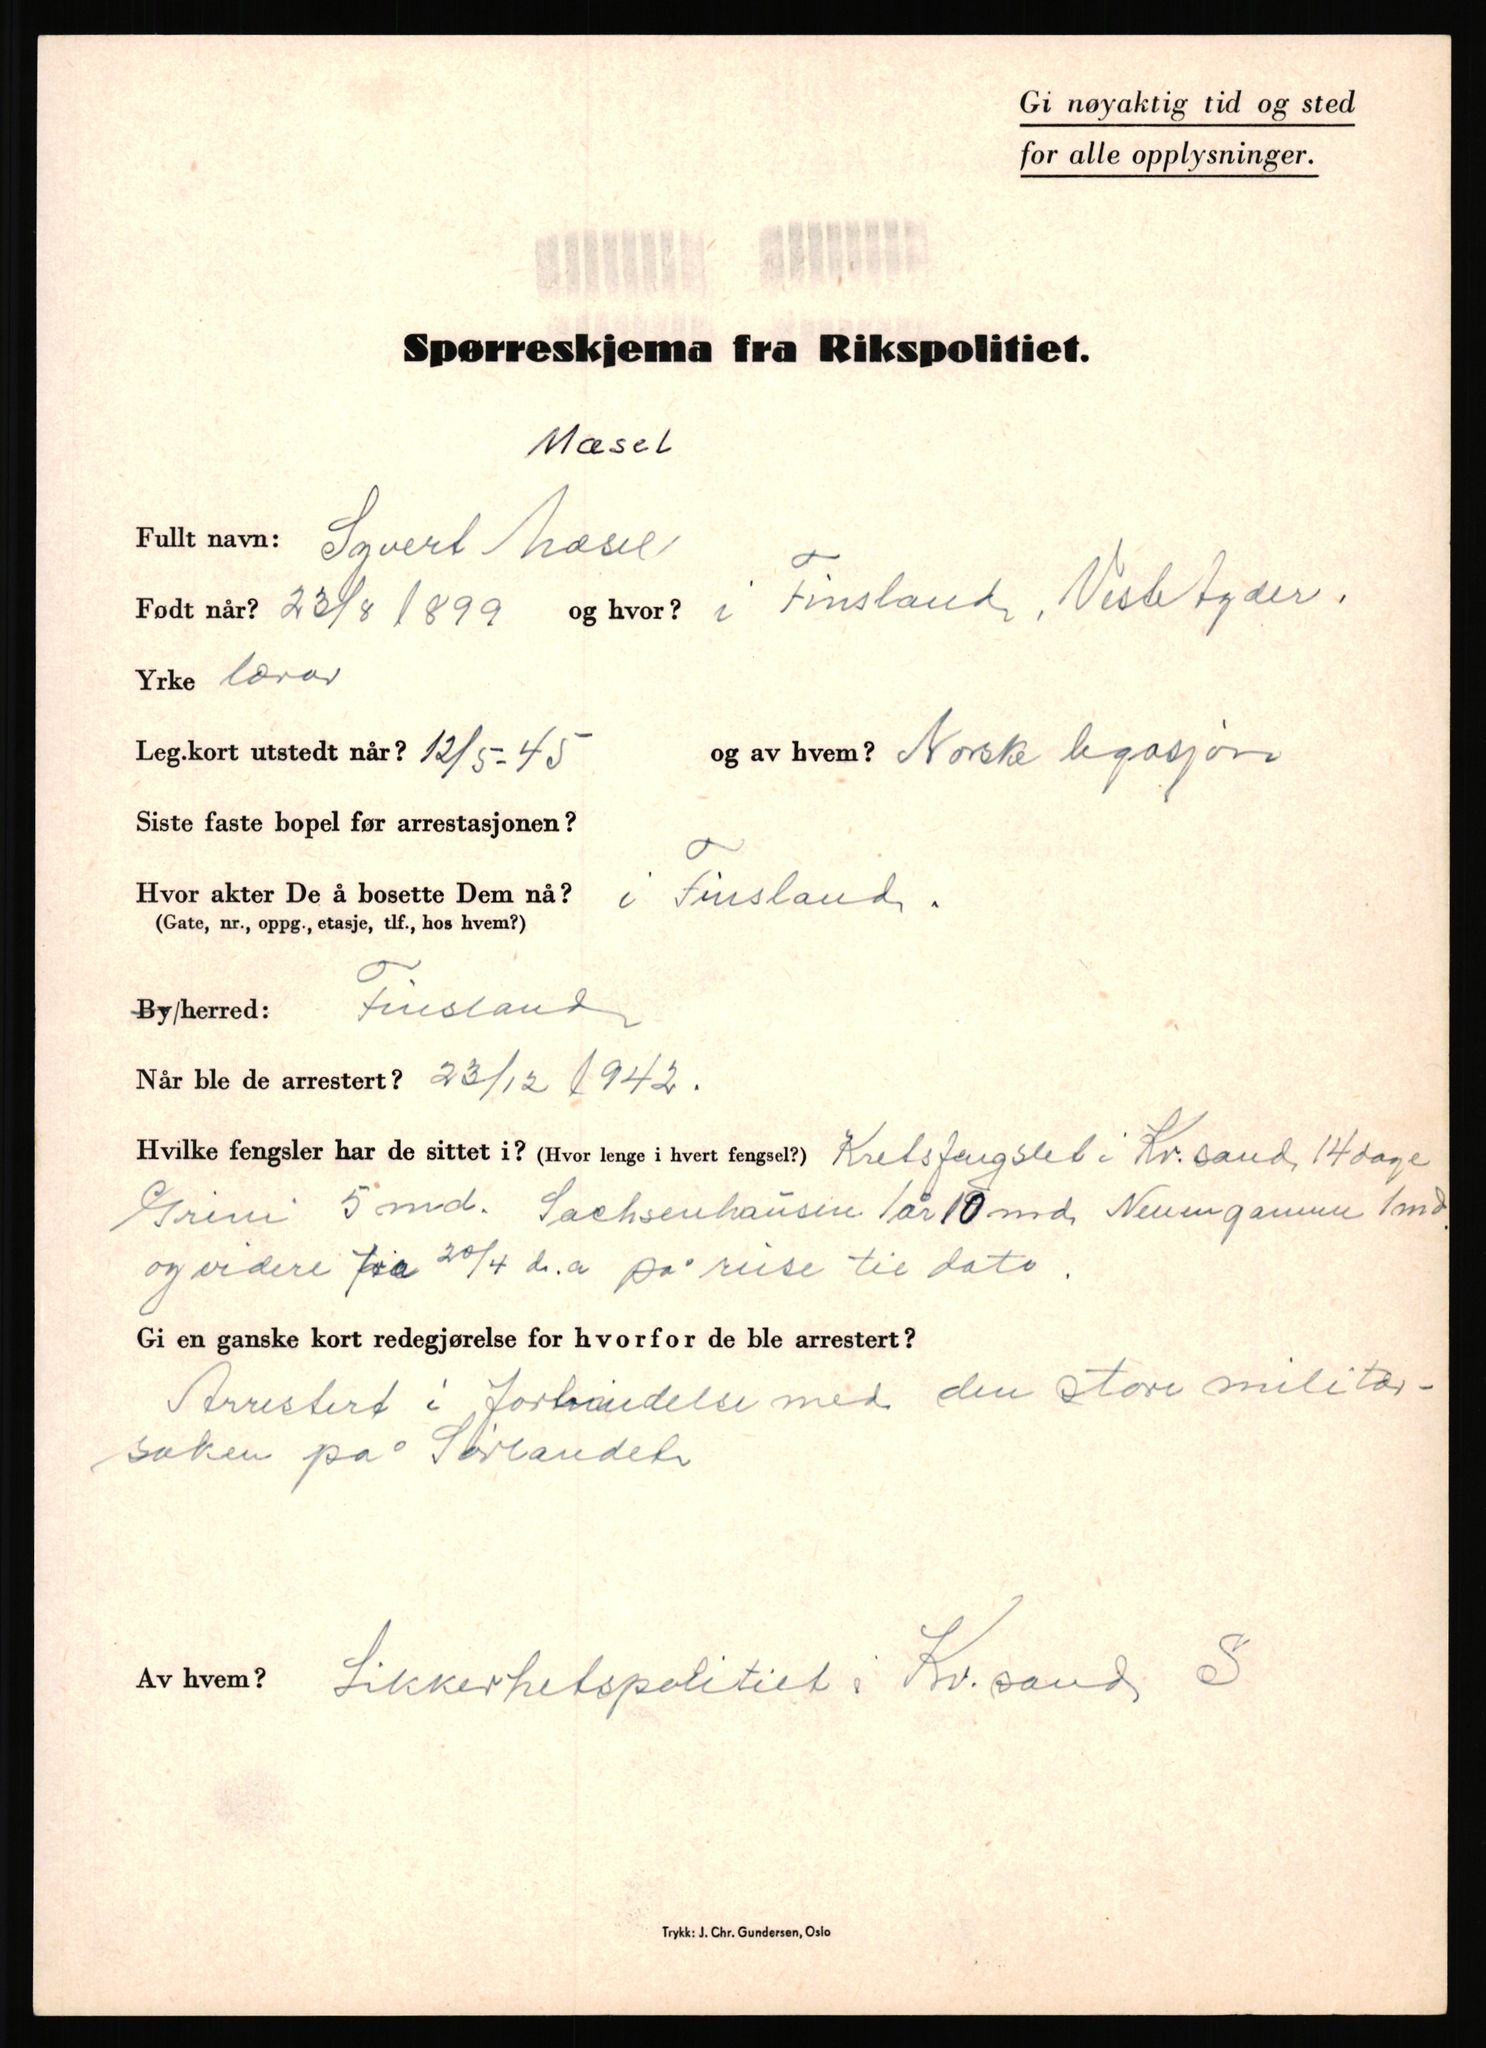 Gi nøyaktig tid og sted
for alle opplysninger.
Spørreskjema fra Rikspolitiet.
Mæsel
Fullt navn: Syvert Mæsel
Født når? 23/8 1899 og hvor? i Finsland, Vest Agder.
Yrke lærar
Leg.kort utstedt når? 12/5-45 og av hvem? Norske legasjon
Siste faste bopel før arrestasjonen?
Hvor akter De å bosette Dem nå? i Finsland.
(Gate, nr., oppg., etasje, tlf., hos hvem?)
By/herred: Finsland
Når ble de arrestert? 23/12 1942.
Hvilke fengsler har de sittet i? (Hvor lenge i hvert fengsel?) Kretsfengslet i Kr.sand 14 dage
Grini 5 md. Sachsenhausen 1 år 10 md Neuengamme 1 md.
og videre fra 20/4 d.a på reise til dato.
Gi en ganske kort redegjørelse for hvorfor de ble arrestert?
Arrestert i forbindelse med den store militær-
saken på Sørlandet
Av hvem? Sikkerhetspolitiet i Kr.sand S
Trykk: J. Chr. Gundersen, Oslo